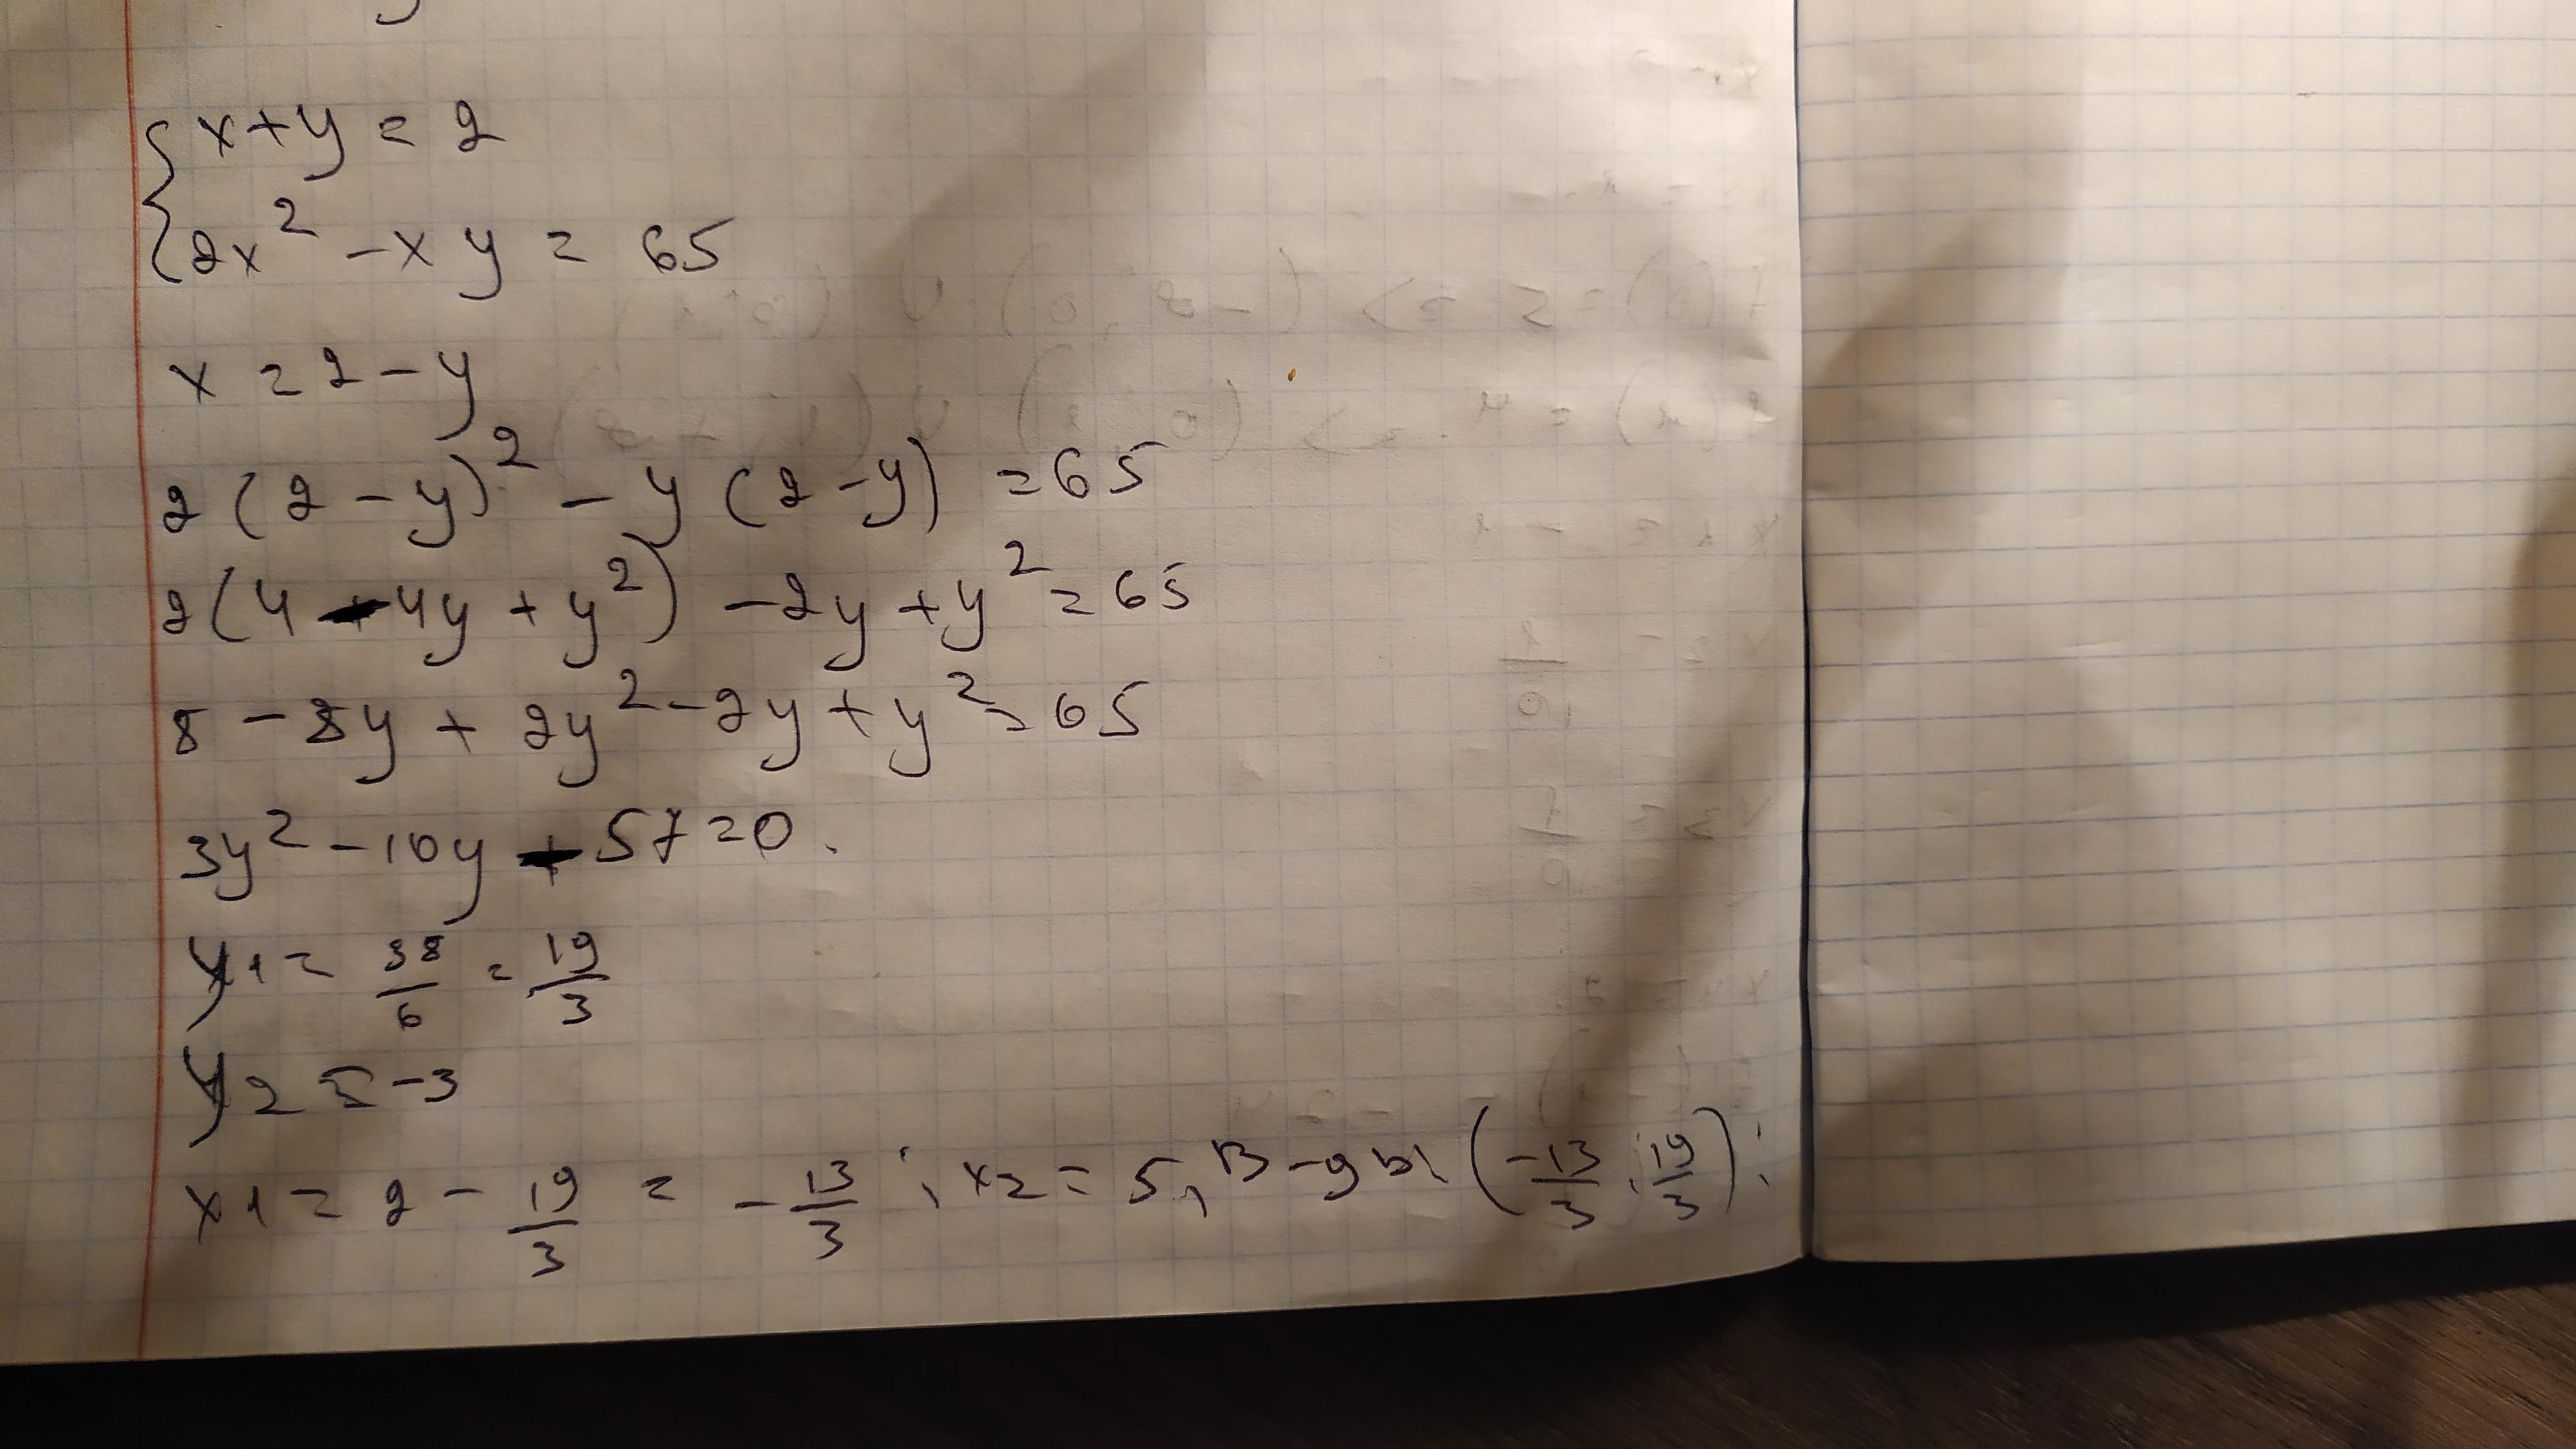 { x + y = 2
2x² - xy = 65
x = 2 - y
2(2 - y)² - y(2 - y) = 65
2(4 - 4y + y²) - 2y + y² = 65
8 - 8y + 2y² - 2y + y² = 65
3y² - 10y - 57 = 0.
y1 = 38/6 = 19/3
y2 = -3
x1 = 2 - 19/3 = -13/3 ; x2 = 5, В-дь (-13/3 ; 19/3) ;